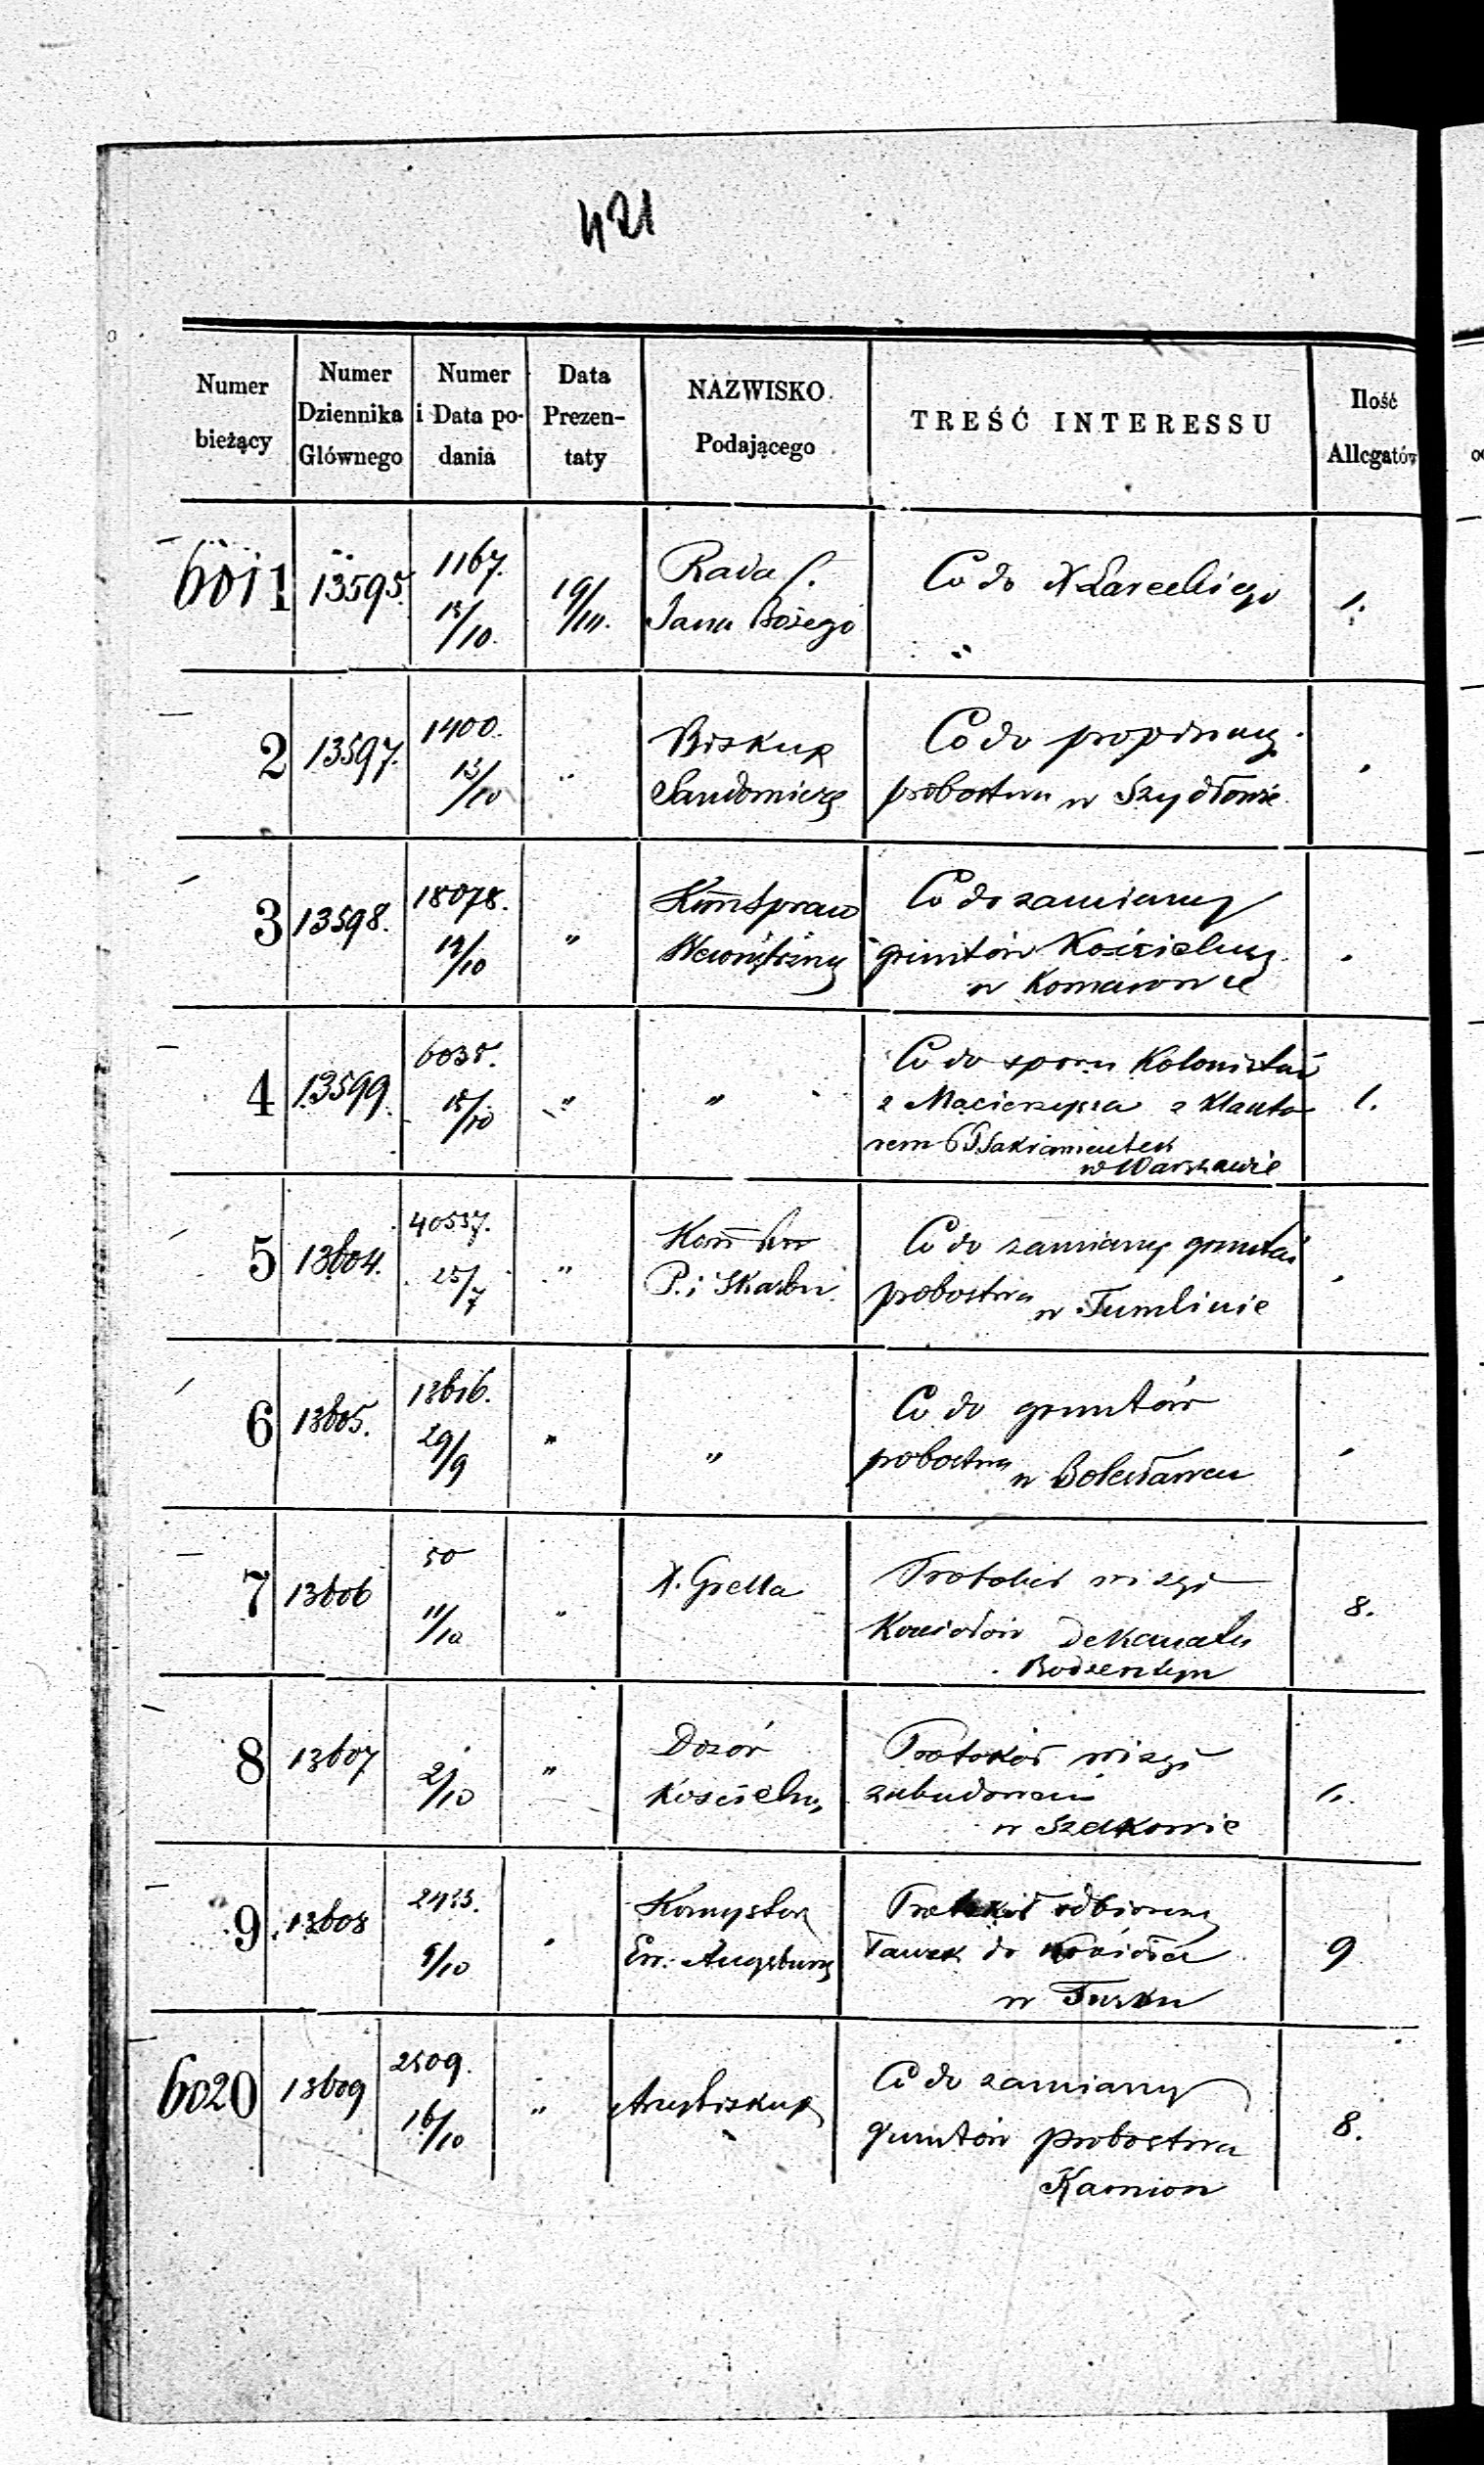 421
Numer bieżący | Numer Dziennika Głównego | Numer i Data podania | Data Prezentaty | NAZWISKO Podającego | TREŚĆ INTERESSU | Ilość Allegatów
6011 13595. 1167. 15/10. 19/10. Rada S. Co do X 1.
Jana Bożego
2 13597. 1400. 13/10 " Biskup Co do propinacy
Sandomirs probostwa w Szydłowie
3 13598. 18078. 14/10 " Kom Spraw Co do zamiany
Wewnętrzny gruntów Kościelny
w Komarowie
4 13599. 6035. 15/10 " " Co do sporu Kolonistów 1.
z Macierzysza z Klaszto
rem PP Sakramentek
w Warszawie
5 13604. 40537. 25/7 " Kom Co do zamiany gruntów
P. i Skarbu probostwa w Tumlinie
6 13605. 13616. 29/9 " " Co do gruntów
probostwa w Bolesławcu
7 13606 50 11/10 " X. Grella Protokół wizyi 8.
Kościołów Dekanatu
Bodzentyn
8 13607 2/10 " Dozór Protokół wizyi 1.
Kościelny zabudowań
w Szelkowie
9 13608 2433. 9/10 " Konsystorz Protokół odbiorczy 9
Ew. Augsburg ławek do Kościoła
w Turku
6020 13609 2509. 16/10 " Arcybiskup Co do zamiany 8.
gruntów probostwa
Kamion